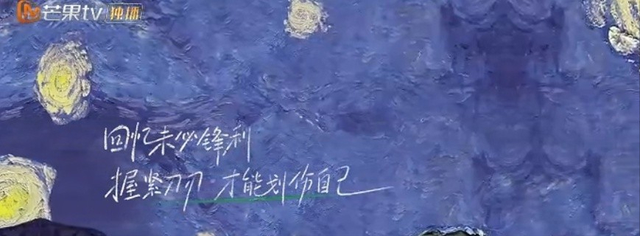 芒果tv 独播
回忆未必锋利
握紧刀刃 才能划伤自己